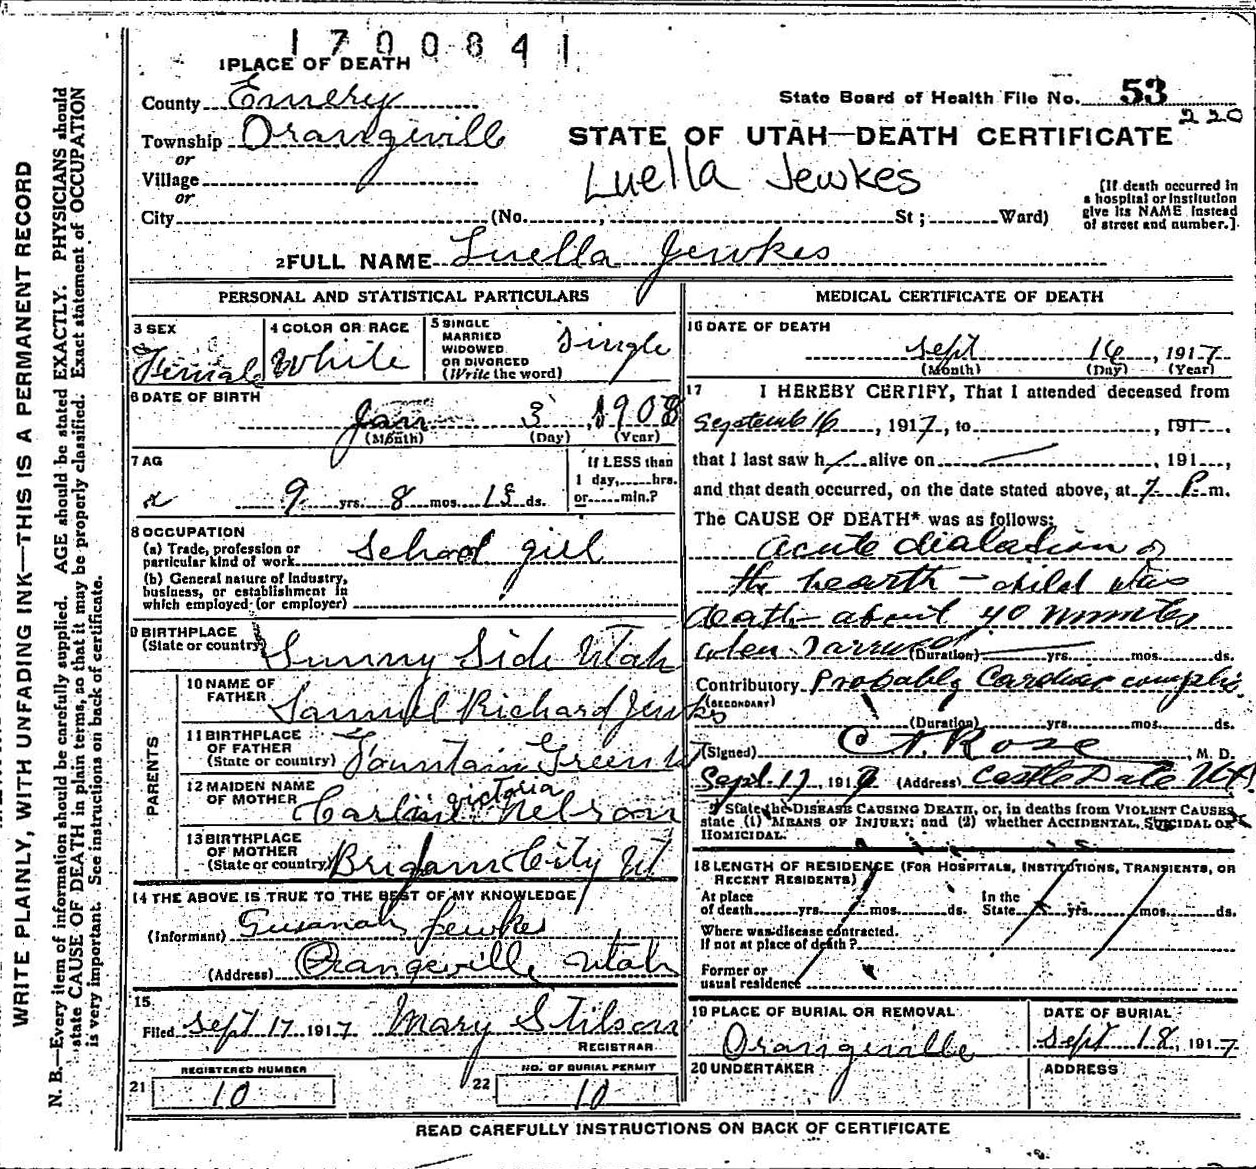 1700841
1 PLACE OF DEATH
County Emery
State Board of Health File No. 53
220
Township Orangeville
STATE OF UTAH—DEATH CERTIFICATE
or
Village
Luella Jewkes
or
City (No. , St ; Ward)
[If death occurred in
a hospital or institution
give its NAME instead
of street and number.]
2 FULL NAME Luella Jewkes
PERSONAL AND STATISTICAL PARTICULARS
3 SEX
Female
4 COLOR OR RACE
White
5 SINGLE
MARRIED
WIDOWED
OR DIVORCED
(Write the word)
Single
6 DATE OF BIRTH
Jan 3, 1908
(Month) (Day) (Year)
7 AG
9 yrs. 8 mos. 13 ds.
If LESS than
1 day, hrs.
or min.?
8 OCCUPATION
(a) Trade, profession or
particular kind of work School girl
(b) General nature of Industry,
business, or establishment in
which employed (or employer)
9 BIRTHPLACE
(State or country) Sunny Side Utah
PARENTS
10 NAME OF
FATHER Samuel Richard Jewkes
11 BIRTHPLACE
OF FATHER
(State or country) Fountain Green U
12 MAIDEN NAME
OF MOTHER
Victoria
Nelson
13 BIRTHPLACE
OF MOTHER
(State or country) Brigham City Ut
14 THE ABOVE IS TRUE TO THE BEST OF MY KNOWLEDGE
(Informant) Susanah Jewkes
(Address) Orangeville Utah
15
Filed Sept 17 1917 Mary Stilson
REGISTRAR
REGISTERED NUMBER
21 10
NO. OF BURIAL PERMIT
22 10
MEDICAL CERTIFICATE OF DEATH
16 DATE OF DEATH
Sept 16, 1917
(Month) (Day) (Year)
17 I HEREBY CERTIFY, That I attended deceased from
Septemb 16, 1917, to , 191 .
that I last saw h alive on , 191 ,
and that death occurred, on the date stated above, at 7 P. m.
The CAUSE OF DEATH* was as follows:
Acute dialadion of
the hearth - child was
death about 40 minutes
when I arrived
(Duration) yrs. mos. ds.
Contributory Probably Cardiac complic.
(SECONDARY)
(Duration) yrs. mos. ds.
(Signed) Rose, M. D.
Sept. 17, 191 (Address) Castle Dale Ut
* State the DISEASE CAUSING DEATH, or, in deaths from VIOLENT CAUSES
state (1) MEANS OF INJURY; and (2) whether ACCIDENTAL, SUICIDAL OR
HOMICIDAL.
18 LENGTH OF RESIDENCE (FOR HOSPITALS, INSTITUTIONS, TRANSIENTS, OR
RECENT RESIDENTS)
At place
of death yrs. mos. ds.
In the
State yrs. mos. ds.
Where was disease contracted.
If not at place of death?
Former or
usual residence
19 PLACE OF BURIAL OR REMOVAL
Orangeville
DATE OF BURIAL
Sept 18, 1917
20 UNDERTAKER
ADDRESS
READ CAREFULLY INSTRUCTIONS ON BACK OF CERTIFICATE
WRITE PLAINLY, WITH UNFADING INK—THIS IS A PERMANENT RECORD
N. B.—Every item of information should be carefully supplied. AGE should be stated EXACTLY. PHYSICIANS should
state CAUSE OF DEATH in plain terms, so that it may be properly classified. Exact statement of OCCUPATION
is very important. See instructions on back of certificate.